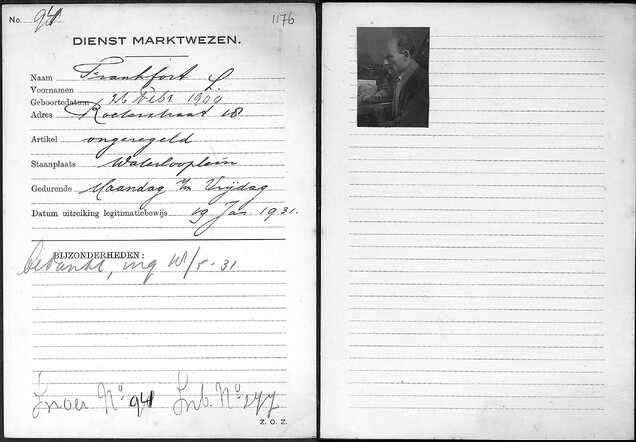 No. 941 1176
DIENST MARKTWEZEN.
Naam Frankfort L.
Voornamen
Geboortedatum 26 Febr 1900
Adres Roeterstraat 18
Artikel ongeregeld
Staanplaats Waterlooplein
Gedurende Maandag t/m Vrijdag
Datum uitreiking legitimatiebewijs 19 Jan 1931.
BIJZONDERHEDEN:
bedankt, ing 18/5-31
No 941 No 277
Z. O. Z.